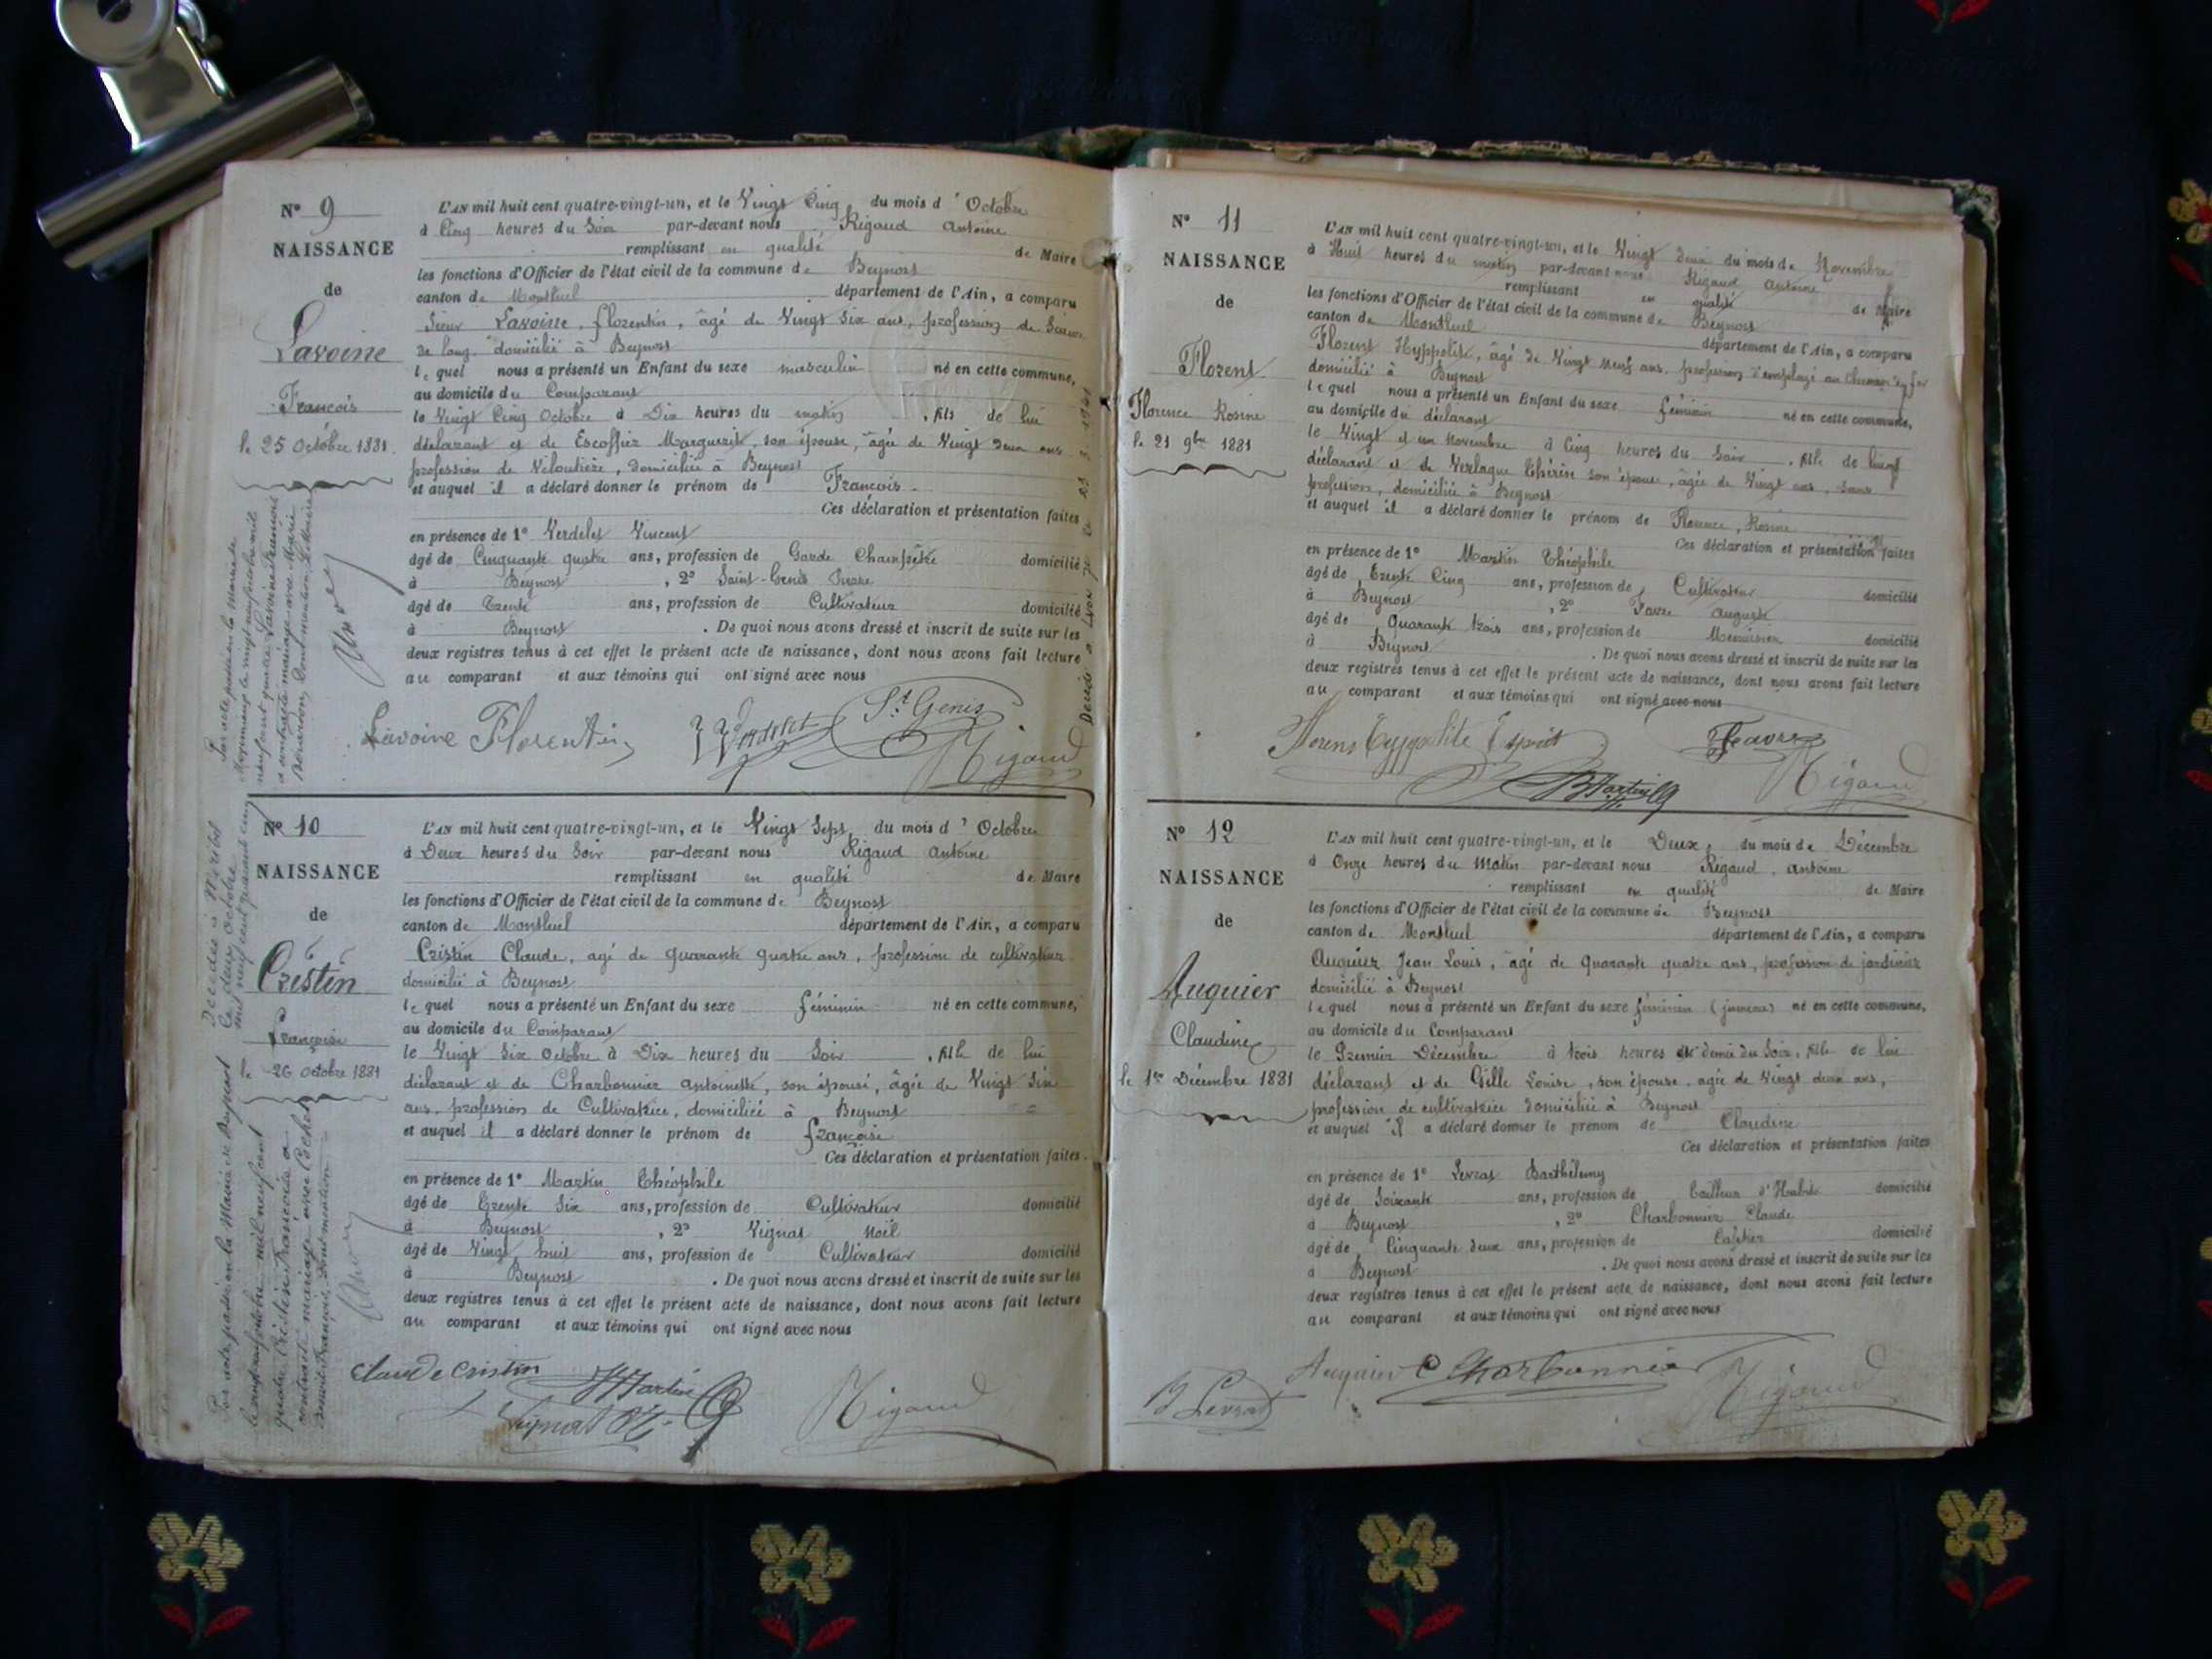 N° 9
NAISSANCE
de
Lavoine
François
le 25 Octobre 1881.
L'AN mil huit cent quatre-vingt-un, et le Vingt Cinq du mois d' Octobre
à Cinq heures du Soir par-devant nous Rigaud Antoine
remplissant en qualité de Maire
les fonctions d'Officier de l'état civil de la commune de Beynost
canton de Montluel département de l'Ain, a comparu
Sieur Lavoine, Florentin, âgé de Vingt Six ans, profession de Scieur
de long domicilié à Beynost
lequel nous a présenté un Enfant du sexe masculin né en cette commune,
au domicile du Comparant
le Vingt Cinq Octobre à Dix heures du matin, fils de lui
déclarant et de Escoffier Marguerite, son épouse, âgée de Vingt deux ans
profession de Veloutière, domiciliée à Beynost
et auquel il a déclaré donner le prénom de François.
Ces déclaration et présentation faites
en présence de 1° Verdelet Vincent
âgé de Cinquante quatre ans, profession de Garde Champêtre domicilié
à Beynost, 2° Saint-Genis Pierre
âgé de Trente ans, profession de Cultivateur domicilié
à Beynost. De quoi nous avons dressé et inscrit de suite sur les
deux registres tenus à cet effet le présent acte de naissance, dont nous avons fait lecture
au comparant et aux témoins qui ont signé avec nous
Lavoine Florentin Verdelet St Genis
Rigaud
Décédé à Lyon
N° 10
NAISSANCE
de
Crestin
Françoise
le 26 Octobre 1881
L'AN mil huit cent quatre-vingt-un, et le Vingt Sept du mois d' Octobre
à Deux heures du Soir par-devant nous Rigaud Antoine
remplissant en qualité de Maire
les fonctions d'Officier de l'état civil de la commune de Beynost
canton de Montluel département de l'Ain, a comparu
Cristin Claude, agé de quarante quatre ans, profession de cultivateur
domicilié à Beynost
lequel nous a présenté un Enfant du sexe féminin né en cette commune,
au domicile du Comparant
le Vingt Six Octobre à Dix heures du Soir, fille de lui
déclarant et de Charbonnier Antoinette, son épouse, âgée de Vingt Six
ans, profession de Cultivatrice, domiciliée à Beynost
et auquel il a déclaré donner le prénom de françoise
Ces déclaration et présentation faites
en présence de 1° Martin Théophile
âgé de Trente Six ans, profession de Cultivateur domicilié
à Beynost, 2° Vignat Noël
âgé de Vingt huit ans, profession de Cultivateur domicilié
à Beynost. De quoi nous avons dressé et inscrit de suite sur les
deux registres tenus à cet effet le présent acte de naissance, dont nous avons fait lecture
au comparant et aux témoins qui ont signé avec nous
Claude Cristin Martin
Vignat Rigaud
Décédée à Miribel
le deux octobre
mil neuf cent quarante cinq
N° 11
NAISSANCE
de
Florent
Florence Rosine
le 21 9bre 1881
L'AN mil huit cent quatre-vingt-un, et le Vingt deux du mois de Novembre
à Huit heures du matin par-devant nous Rigaud Antoine
remplissant en qualité de Maire
les fonctions d'Officier de l'état civil de la commune de Beynost
canton de Montluel département de l'Ain, a comparu
Florent Hyppolite, âgé de Vingt neuf ans, profession d'employé au chemin de fer
domicilié à Beynost
lequel nous a présenté un Enfant du sexe féminin né en cette commune,
au domicile du déclarant
le Vingt et un Novembre à Cinq heures du Soir, fille de lui
déclarant et de Verlaque son épouse, âgée de Vingt ans, sans
profession, domiciliée à Beynost
et auquel il a déclaré donner le prénom de Florence, Rosine
Ces déclaration et présentation faites
en présence de 1° Martin Théophile
âgé de Trente Cinq ans, profession de Cultivateur domicilié
à Beynost, 2° Favre Auguste
âgé de Quarante trois ans, profession de Menuisier domicilié
à Beynost. De quoi nous avons dressé et inscrit de suite sur les
deux registres tenus à cet effet le présent acte de naissance, dont nous avons fait lecture
au comparant et aux témoins qui ont signé avec nous
Florens Hyppolite Esprit Favre
Martin Rigaud
N° 12
NAISSANCE
de
Auquier
Claudine
le 1er Décembre 1881
L'AN mil huit cent quatre-vingt-un, et le Deux du mois de Décembre
à Onze heures du Matin par-devant nous Rigaud, Antoine
remplissant en qualité de Maire
les fonctions d'Officier de l'état civil de la commune de Beynost
canton de Montluel département de l'Ain, a comparu
Auquier Jean Louis, âgé de Quarante quatre ans, profession de jardinier
domicilié à Beynost
lequel nous a présenté un Enfant du sexe féminin (jumeau) né en cette commune,
au domicile du Comparant
le Premier Décembre à trois heures et demie du Soir, fille de lui
déclarant et de Gille Louise, son épouse, agée de Vingt deux ans,
profession de cultivatrice domiciliée à Beynost
et auquel il a déclaré donner le prénom de Claudine
Ces déclaration et présentation faites
en présence de 1° Levrat Barthélemy
âgé de Soixante ans, profession de Tailleur d'Habits domicilié
à Beynost, 2° Charbonnier Claude
âgé de Cinquante deux ans, profession de Cafetier domicilié
à Beynost. De quoi nous avons dressé et inscrit de suite sur les
deux registres tenus à cet effet le présent acte de naissance, dont nous avons fait lecture
au comparant et aux témoins qui ont signé avec nous
Auquier C Charbonnier Rigaud
B Levrat